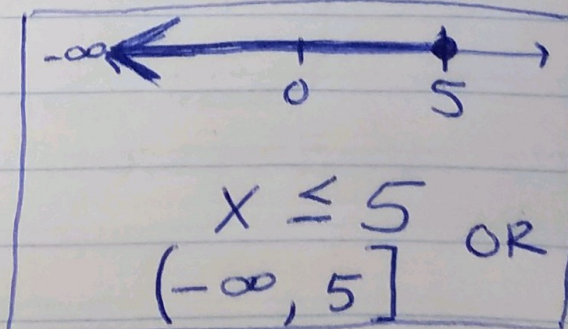 -∞
0 5
x ≤ 5 OR
(-∞, 5]